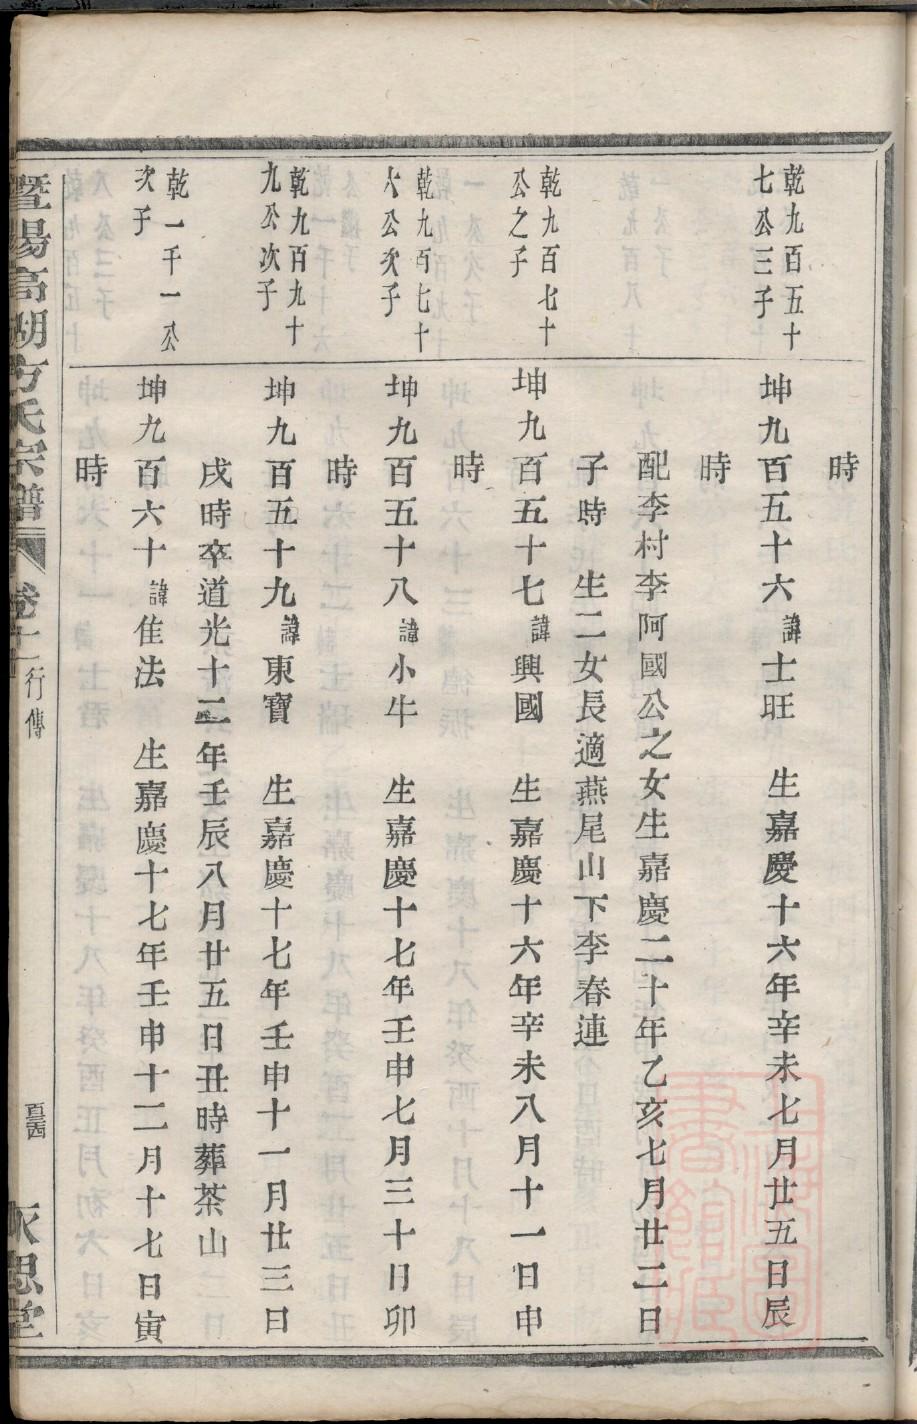 時
乾九百五十
七公三子
坤九百五十六諱士旺　生嘉慶十六年辛未七月廿五日辰
時
配李村李阿國公之女生嘉慶二十年乙亥七月廿二日
子時　生二女長適燕尾山下李春連
乾九百七十
公之子
坤九百五十七諱興國　生嘉慶十六年辛未八月十一日申
時
乾九百七十
六公次子
坤九百五十八諱小牛　生嘉慶十七年壬申七月三十日卯
時
乾九百九十
九公次子
坤九百五十九諱東寶　生嘉慶十七年壬申十一月廿三日
戌時卒道光十二年壬辰八月廿五日丑時葬茶山
乾一千一公
次子
坤九百六十諱佳法　生嘉慶十七年壬申十二月十七日寅
時
暨陽高湖方氏宗譜
卷十一
行傳
思堂